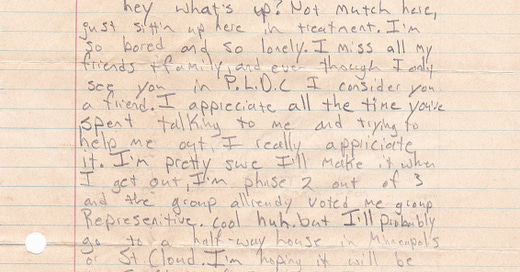 hey what's up? Not mutch here,
just sitt'n up here in treatment. I'm
so bored and so lonely. I miss all my
friends + family, and even though I only
see you in P.L.D.C I consider you
a friend. I appreciate all the time you've
spent talking to me and trying to
help me out, I really appriciate
it. I'm pretty sure I'll make it when
I get out, I'm phase 2 out of 3
and the group allready voted me group
Represenitive. cool huh. but I'll probably
go to a half-way house in Minneapolis
or St. Cloud. I'm hoping it will be